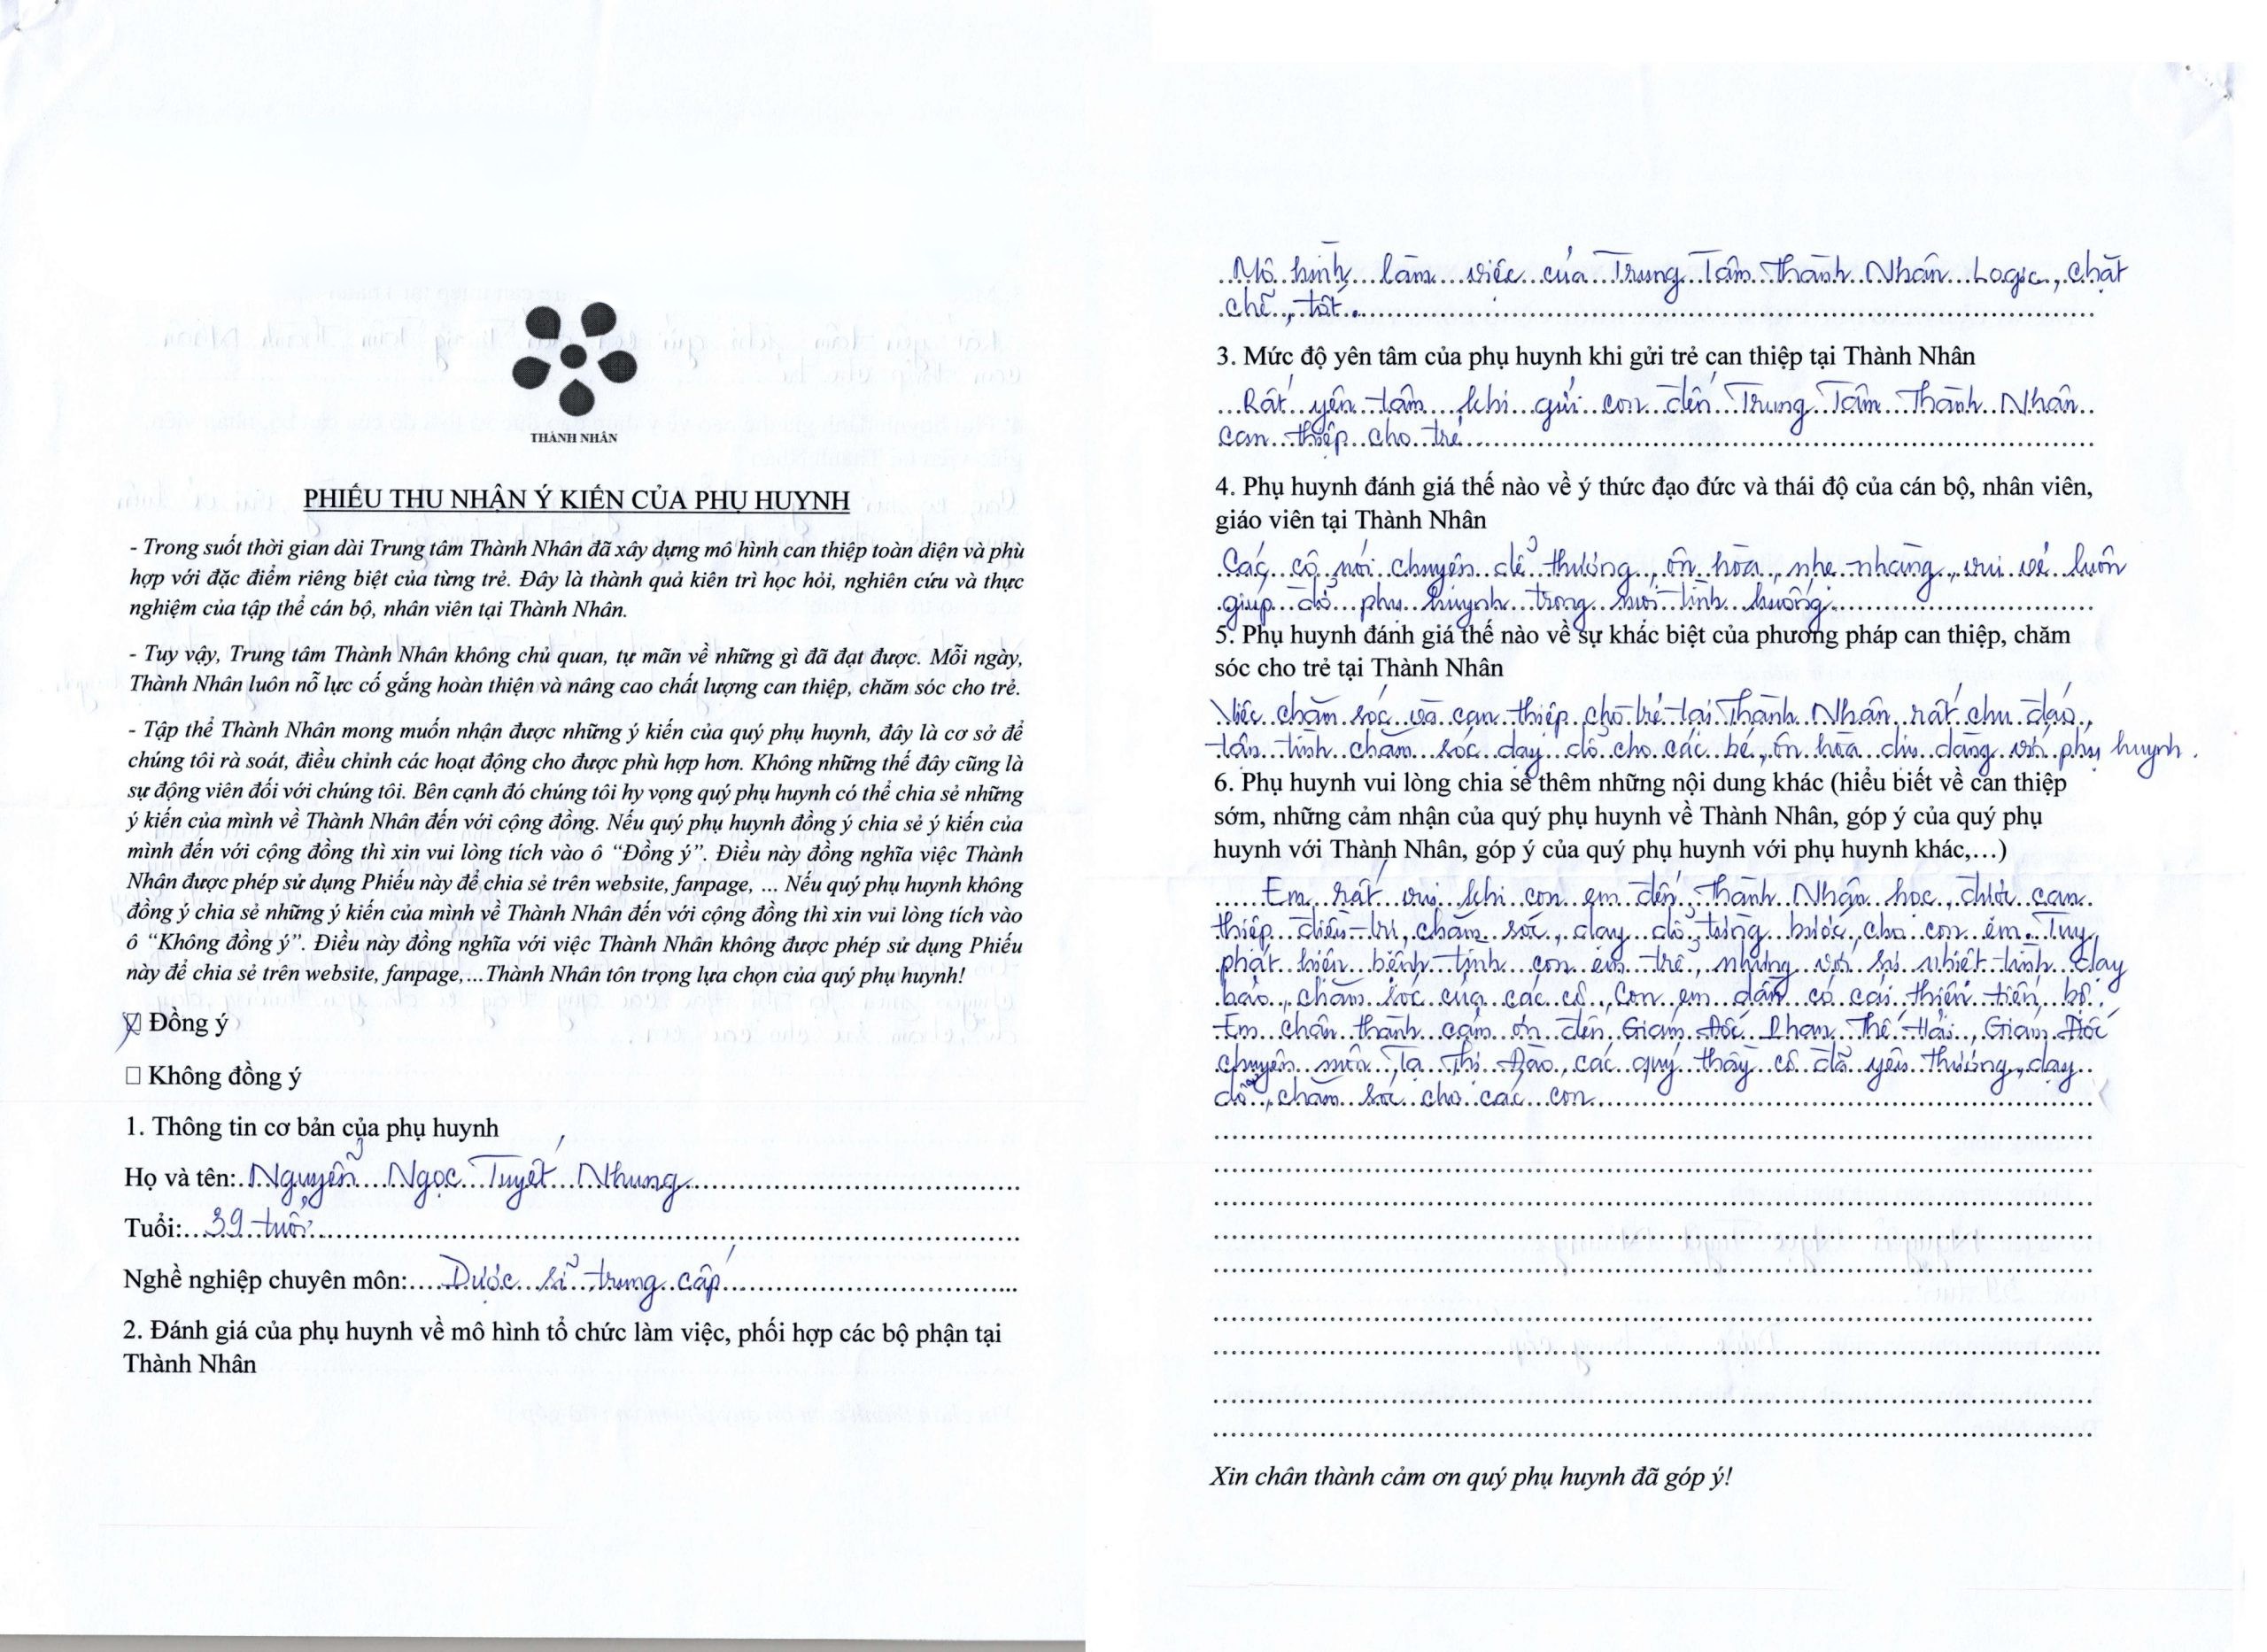 THÀNH NHÂN
PHIẾU THU NHẬN Ý KIẾN CỦA PHỤ HUYNH
- Trong suốt thời gian dài Trung tâm Thành Nhân đã xây dựng mô hình can thiệp toàn diện và phù
hợp với đặc điểm riêng biệt của từng trẻ. Đây là thành quả kiên trì học hỏi, nghiên cứu và thực
nghiệm của tập thể cán bộ, nhân viên tại Thành Nhân.
- Tuy vậy, Trung tâm Thành Nhân không chủ quan, tự mãn về những gì đã đạt được. Mỗi ngày,
Thành Nhân luôn nỗ lực cố gắng hoàn thiện và nâng cao chất lượng can thiệp, chăm sóc cho trẻ.
- Tập thể Thành Nhân mong muốn nhận được những ý kiến của quý phụ huynh, đây là cơ sở để
chúng tôi rà soát, điều chỉnh các hoạt động cho được phù hợp hơn. Không những thế đây cũng là
sự động viên đối với chúng tôi. Bên cạnh đó chúng tôi hy vọng quý phụ huynh có thể chia sẻ những
ý kiến của mình về Thành Nhân đến với cộng đồng. Nếu quý phụ huynh đồng ý chia sẻ ý kiến của
mình đến với cộng đồng thì xin vui lòng tích vào ô “Đồng ý”. Điều này đồng nghĩa việc Thành
Nhận được phép sử dụng Phiếu này để chia sẻ trên website, fanpage, ... Nếu quý phụ huynh không
đồng ý chia sẻ những ý kiến của mình về Thành Nhân đến với cộng đồng thì xin vui lòng tích vào
ô “Không đồng ý”. Điều này đồng nghĩa với việc Thành Nhân không được phép sử dụng Phiếu
này để chia sẻ trên website, fanpage,...Thành Nhân tôn trọng lựa chọn của quý phụ huynh!
☑ Đồng ý
☐ Không đồng ý
1. Thông tin cơ bản của phụ huynh
Họ và tên: Nguyễn Ngọc Tuyết Nhung
Tuổi: 39 tuổi
Nghề nghiệp chuyên môn: Dược sĩ trung cấp
2. Đánh giá của phụ huynh về mô hình tổ chức làm việc, phối hợp các bộ phận tại
Thành Nhân
Mô hình làm việc của Trung Tâm Thành Nhân Logic, chặt
chẽ, tốt.
3. Mức độ yên tâm của phụ huynh khi gửi trẻ can thiệp tại Thành Nhân
Rất yên tâm khi gửi con đến Trung Tâm Thành Nhân
can thiệp cho trẻ
4. Phụ huynh đánh giá thế nào về ý thức đạo đức và thái độ của cán bộ, nhân viên,
giáo viên tại Thành Nhân
Các cô nói chuyện dễ thương, ôn hòa, nhẹ nhàng, vui vẻ luôn
giúp đỡ phụ huynh trong mọi tình huống.
5. Phụ huynh đánh giá thế nào về sự khác biệt của phương pháp can thiệp, chăm
sóc cho trẻ tại Thành Nhân
Việc chăm sóc và can thiệp cho trẻ tại Thành Nhân rất chu đáo,
tận tình chăm sóc dạy dỗ cho các bé, ôn hòa dịu dàng với phụ huynh.
6. Phụ huynh vui lòng chia sẻ thêm những nội dung khác (hiểu biết về can thiệp
sớm, những cảm nhận của quý phụ huynh về Thành Nhân, góp ý của quý phụ
huynh với Thành Nhân, góp ý của quý phụ huynh với phụ huynh khác,...)
Em rất vui khi con em đến Thành Nhân học, được can
thiệp điều trị, chăm sóc, dạy dỗ từng bước, cho con em. Tuy
phát hiện bệnh tình con em trễ, nhưng với sự nhiệt tình dạy
bảo, chăm sóc của các cô, con em dần có cải thiện tiến bộ.
Em chân thành cảm ơn đến Giám Đốc Phạm Thế Hải, Giám Đốc
chuyên môn Tạ Thị Đào, các quý thầy cô đã yêu thương, dạy
dỗ, chăm sóc cho các con
Xin chân thành cảm ơn quý phụ huynh đã góp ý!